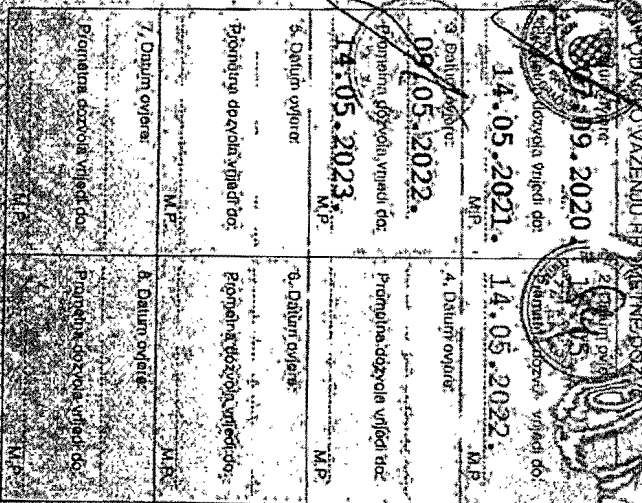 VAŽENJU
09.2020
dozvola vrijedi do:
14.05.2021.
M.P.
2. Datum
dozvola vrijedi do:
14.05.2022.
M.P.
3. Datum ovjere:
05.2022.
Prometna dozvola vrijedi do:
14.05.2023.
M.P.
4. Datum ovjere:
Prometna dozvola vrijedi do:
M.P.
5. Datum ovjere:
Prometna dozvola vrijedi do:
M.P.
6. Datum ovjere:
Prometna dozvola vrijedi do:
M.P.
7. Datum ovjere:
Prometna dozvola vrijedi do:
M.P.
8. Datum ovjere:
Prometna dozvola vrijedi do:
M.P.